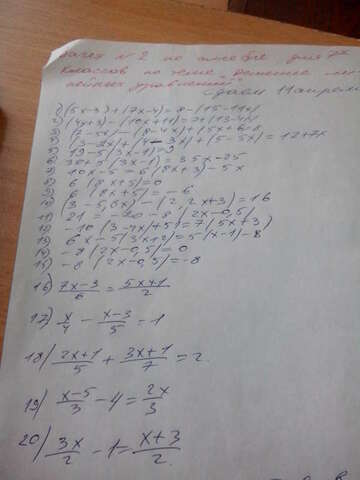 Зачет №2 по алгебре для 7х
классов по теме „Решение
линейных уравнений"
1) (5x-3)+(7x-4)=8-(15-11x)
2) (4x+3)-(10x+11)=7+(13-4x)
3) (7-5x)-(8-4x)+(5x+6)=8
4) (3-2x)+(4-3x)+(5-5x)=12+7x
5) 19-5(3x-1)=9
6) 30+5(3x-1)=35x-25
7) 10x-5=6(8x+3)-5x
8) 6(8x+5)=0
9) 6(8x+5)=-6
10) (3-5,8x)-(2,2x+3)=16
11) 21=-20-8(2x-0,5)
12) -10(3-4x)+5)=7(5x+3)
13) 6x-5(3x+2)=5(x-1)-8
14) -8(2x-0,5)=0
15) -8(2x-0,5)=-8
16) \frac{7x-3}{6}=\frac{5x+1}{2}
17) \frac{x}{4}-\frac{x-3}{5}=-1
18) \frac{2x+1}{5}+\frac{3x+1}{7}=2.
19) \frac{x-5}{3}-4=\frac{2x}{3}
20) \frac{3x}{2}-1=\frac{x+3}{2}.